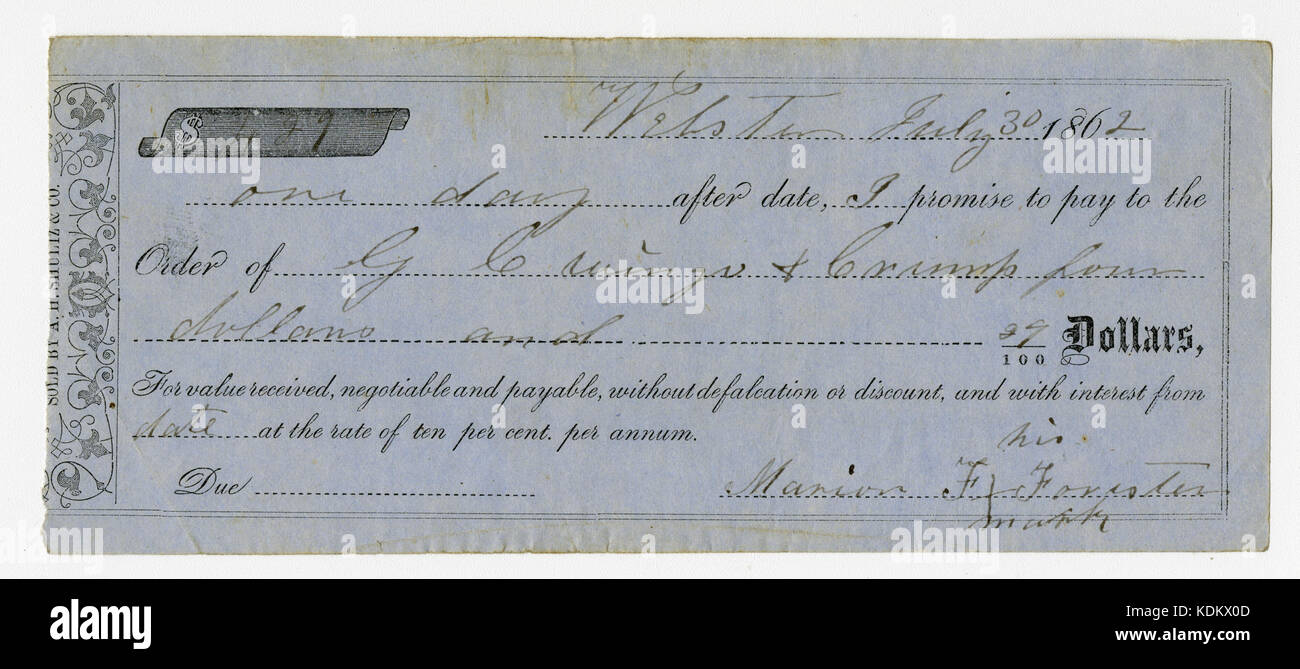 SOLD BY A. H. SHULTZ & CO.
29
Webster July 30 1862
one day after date, I promise to pay to the
Order of G C wingo & Crump four
dollars and 29/100 Dollars,
For value received, negotiable and payable, without defalcation or discount, and with interest from
date at the rate of ten per cent. per annum.
his
Due Marion F Forister
mark
alamy
alamy
a
alamy
Image ID: KDKX0D
www.alamy.com